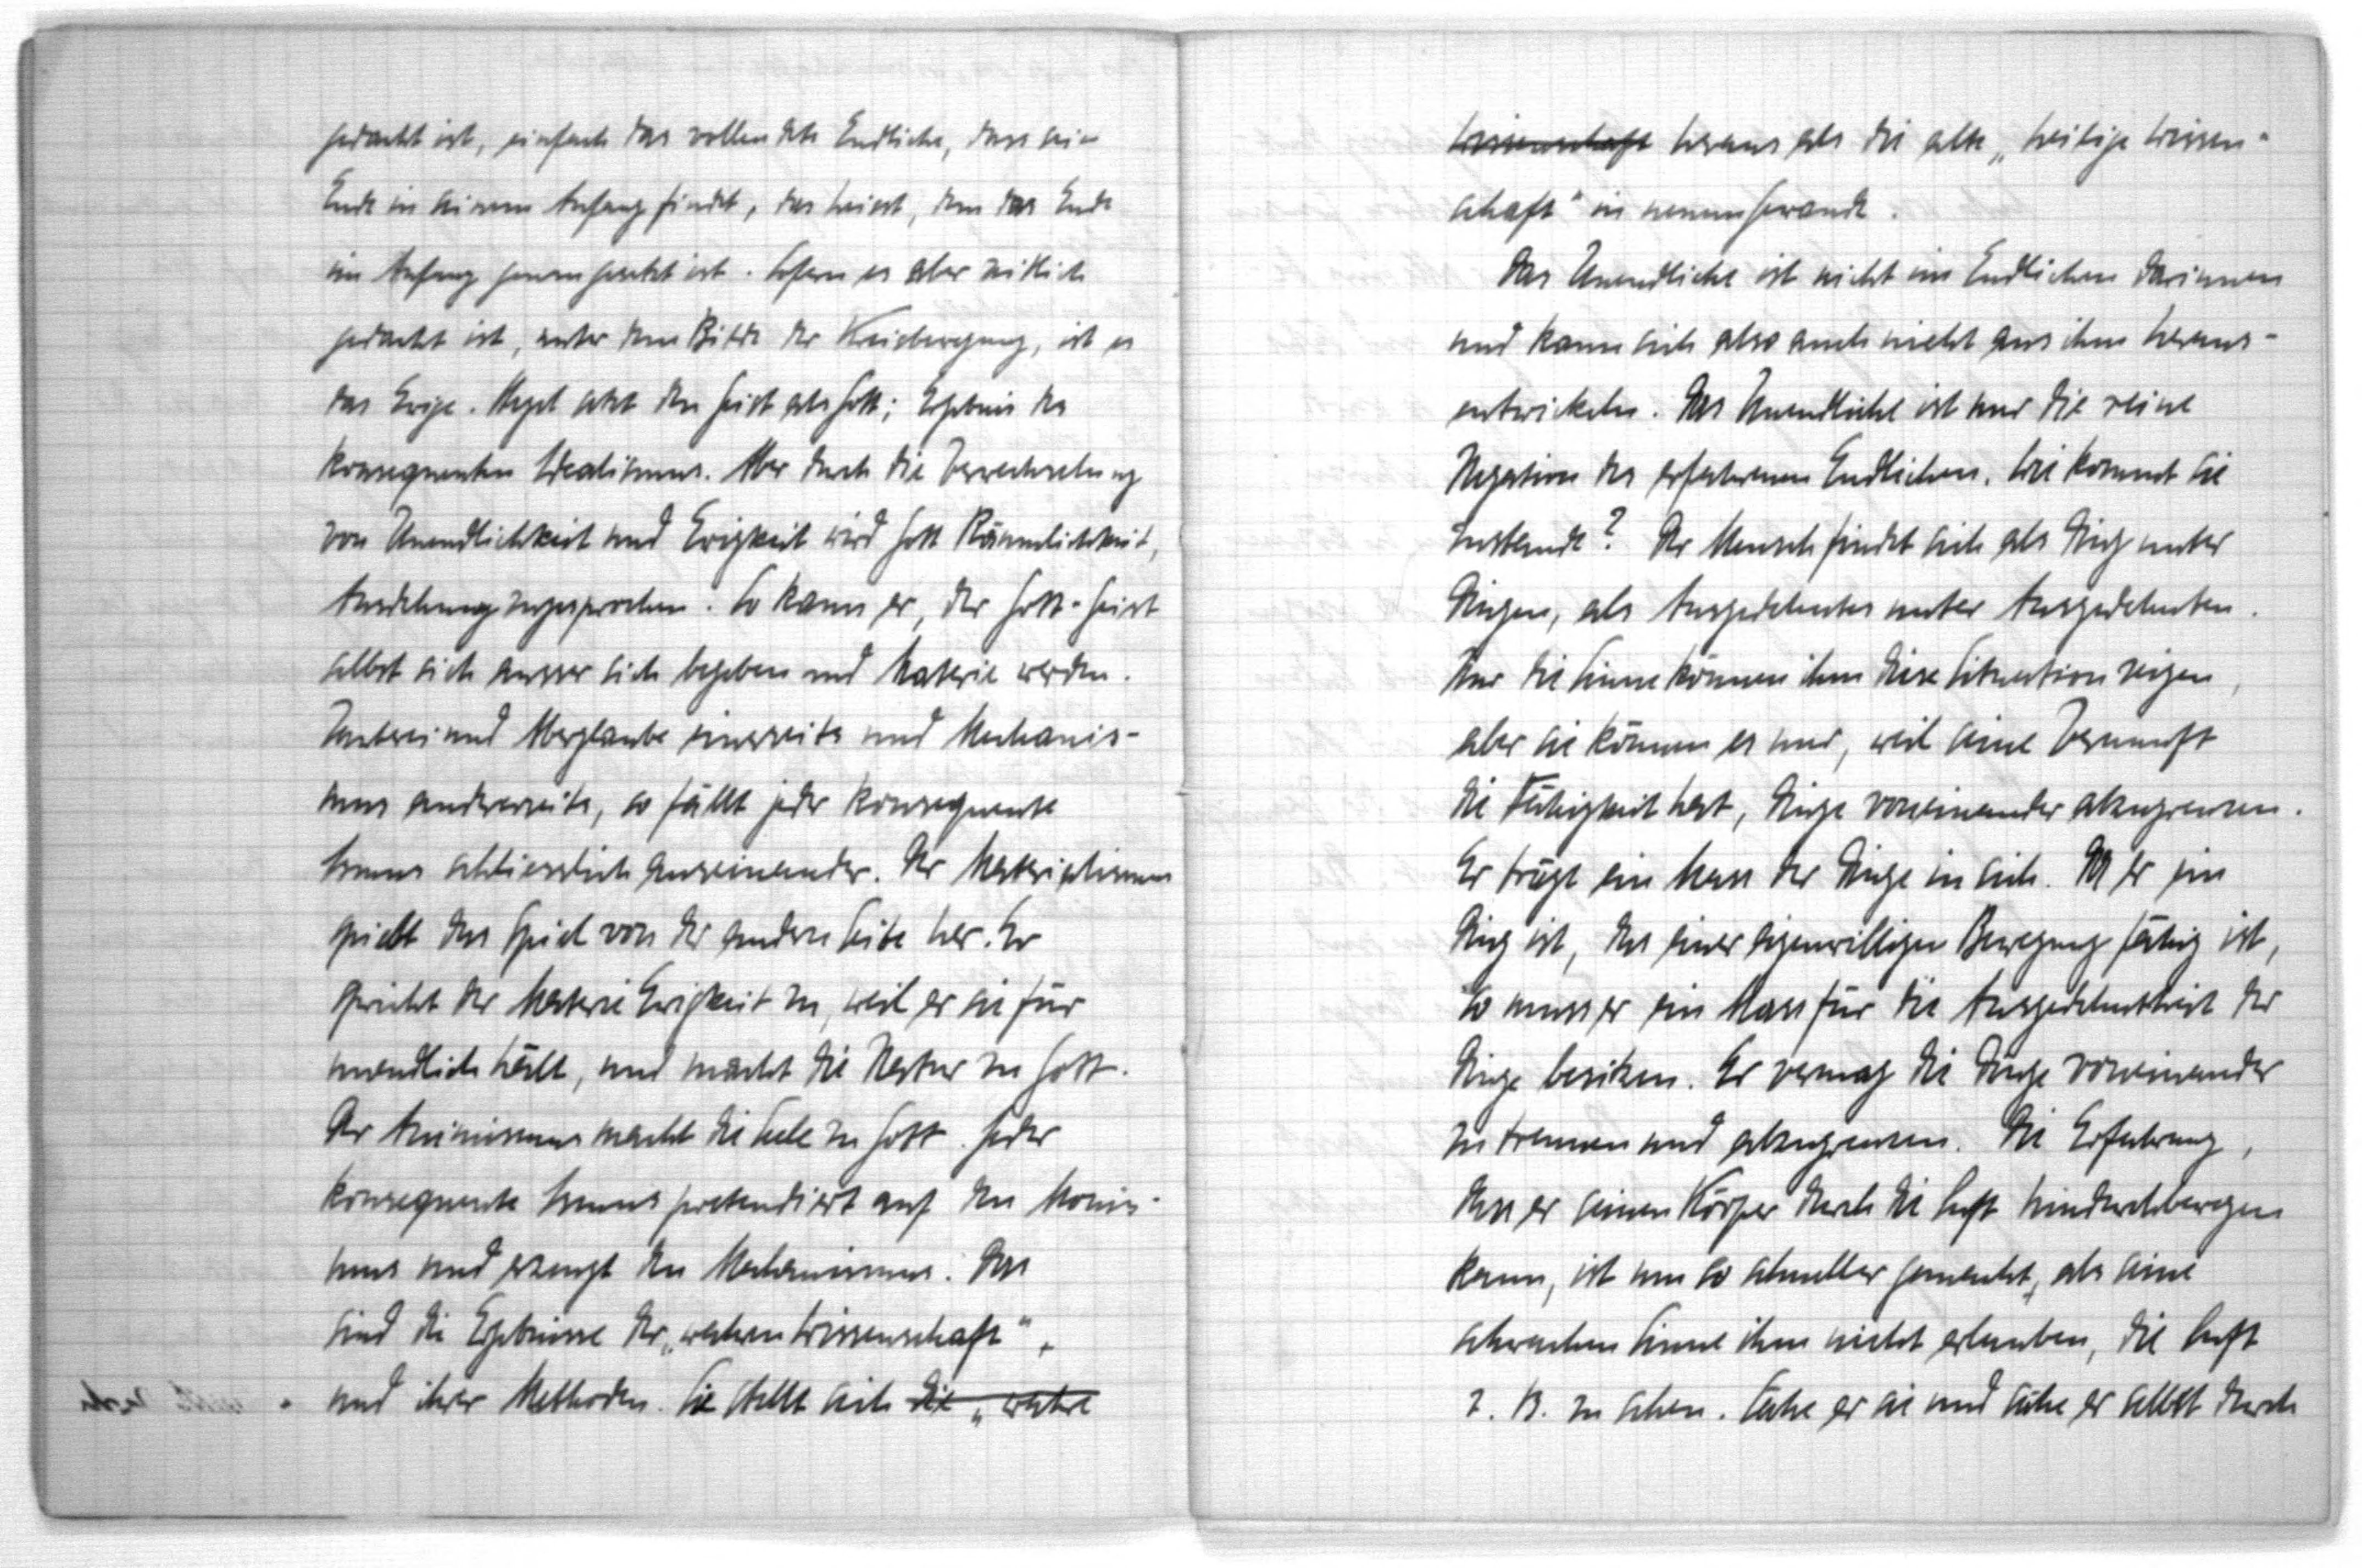 gedacht ist, einfach das vollendete Endliche, dass sein
Ende in seinem Anfang findet, das heisst, dem das Ende
im Anfang genau gesetzt ist. Sofern es aber zeitlich
gedacht ist, unter dem Bilde der Kreisbewegung, ist es
das Ewige. Hegel setzt den Geist als Gott; Ergebnis des
konsequenten Idealismus. Aber durch die Verwechselung
von Unendlichkeit und Ewigkeit wird Gott Räumlichkeit,
Ausdehnung zugesprochen. So kann er, der Gott-Geist
selbst sich ausser sich begeben und Materie werden.
Zauberei und Aberglaube einerseits und Mechanis-
mus andererseits, so fällt jeder konsequente
Ismus schliesslich auseinander. Der Materialismus
spielt das Spiel von der andern Seite her. Er
spricht der Materie Ewigkeit zu, weil er sie für
unendlich hält, und macht die Natur zu Gott.
Der Animismus macht die Seele zu Gott. Jeder
konsequente Ismus pretendiert auf den Monis-
mus und erzeugt den Mechanismus. Das
sind die Ergebnisse der „wahren Wissenschaft"
und ihrer Methoden. Sie stellt sich die „wahre
Wissenschaft heraus als die alte „heilige Wissen-
schaft" in neuem Gewande.
Das Unendliche ist nicht im Endlichen darinnen
und kann sich also auch nicht aus ihm heraus-
entwickeln. Das Unendliche ist nur die reine
Negation des erfahrenen Endlichen. Wie kommt sie
zustande? Der Mensch findet sich als Ding unter
Dingen, als Ausgedehntes unter Ausgedehnten.
Nur die Sinne können ihm diese Situation zeigen,
aber sie können es nur, weil seine Vernunft
die Fähigkeit hat, Dinge voneinander abzugrenzen.
Er trägt ein Mass der Dinge in sich. Da er ein
Ding ist, das einer eigenwilligen Bewegung fähig ist,
so muss er ein Mass für die Ausgedehntheit der
Dinge besitzen. Er vermag die Dinge voneinander
zu trennen und abzugrenzen. Die Erfahrung,
dass er seinen Körper durch die Luft hindurchbewegen
kann, ist um so schneller gemacht, als seine
schwachen Sinne ihm nicht erlauben, die Luft
z. B. zu sehen. Sähe er sie und sähe er selbst durch